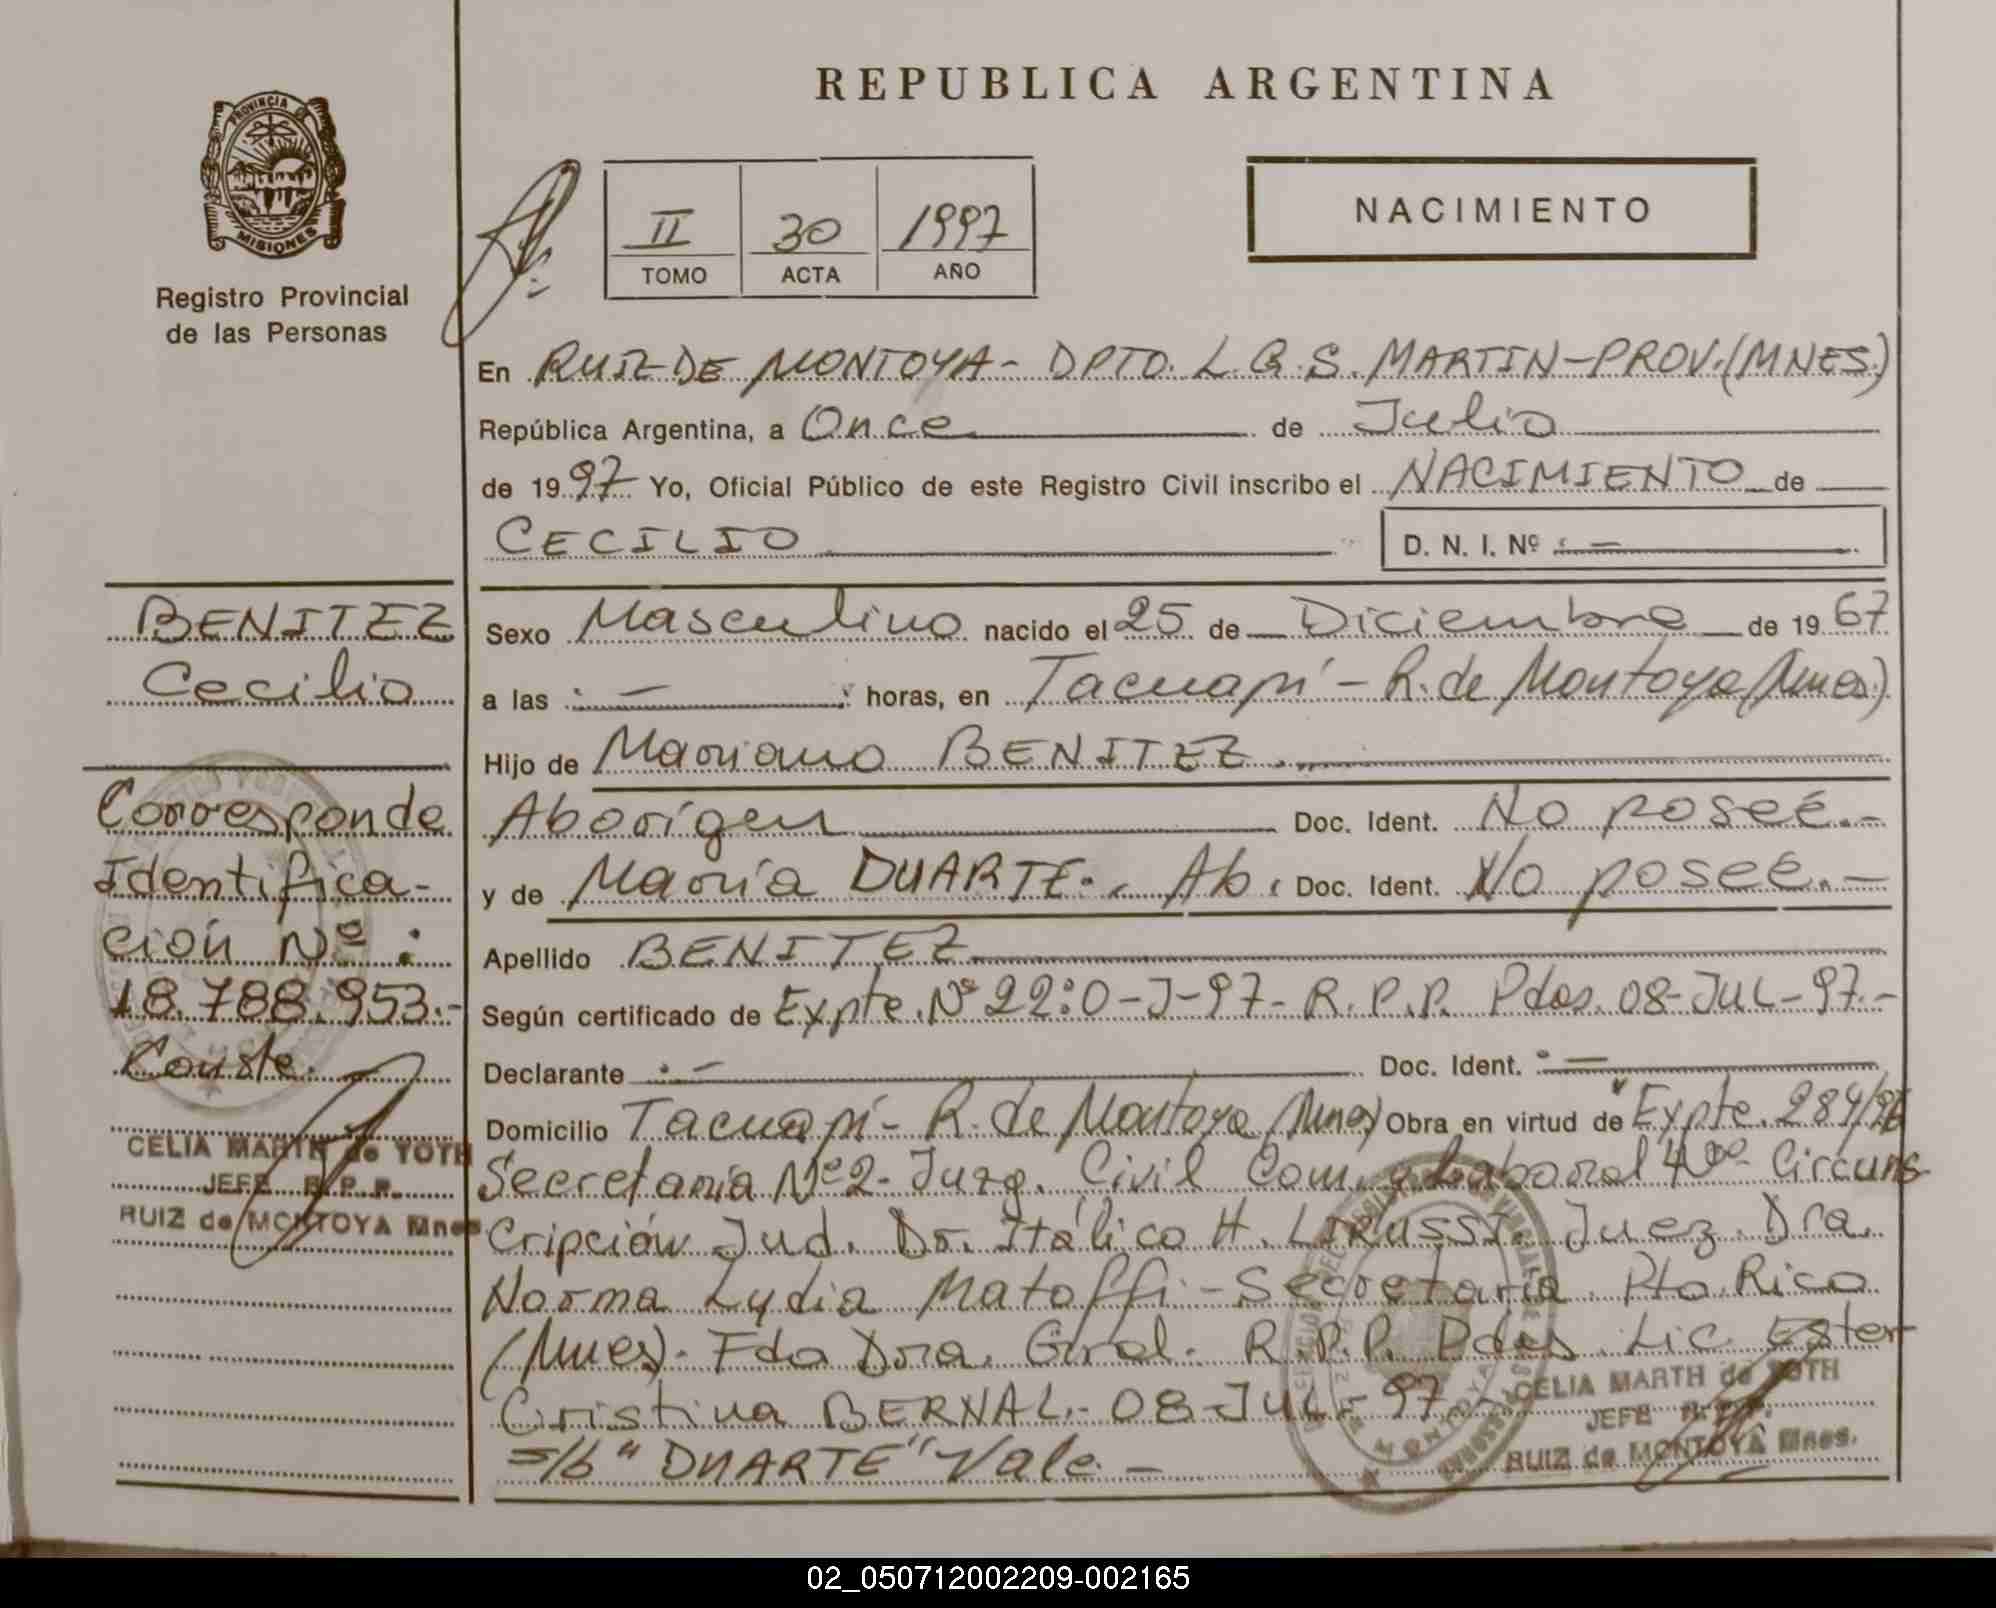 REPUBLICA ARGENTINA
PROVINCIA DE
MISIONES
Registro Provincial
de las Personas
II 30 1997
TOMO ACTA AÑO
NACIMIENTO
En RUIZ DE MONTOYA - DPTO. L. G. S. MARTIN - PROV. (MNES.)
República Argentina, a Once de Julio
de 1997 Yo, Oficial Público de este Registro Civil inscribo el NACIMIENTO de
CECILIO D. N. I. Nº : —
BENITEZ
Cecilio
Corresponde
Identifica-
ción Nº :
18.788.953.-
Conste.
CELIA MARTH de TOTH
JEFE R. P. P.
RUIZ de MONTOYA Mnes.
Sexo Masculino nacido el 25 de Diciembre de 1967
a las : — : horas, en Tacuapí - R. de Montoya (Mnes.)
Hijo de Mariano BENITEZ.
Aborígen Doc. Ident. No poseé.-
y de María DUARTE. Ab. Doc. Ident. No poseé.-
Apellido BENITEZ
Según certificado de Expte. Nº 22:0-J-97- R.P.P. Pdas. 08-JUL-97.-
Declarante : — Doc. Ident. : —
Domicilio Tacuapí - R. de Montoya (Mnes) Obra en virtud de Expte. 284/96
Secretaría Nº 2- Juzg. Civil Com. y Laboral 4º Circuns
Cripción Jud. Dr. Itálico H. Juez. Dra.
Norma Lydia Matoffi - Secretaria. Pto. Rico
(Mnes). Fdo Dra. Gral. R.P.P. Pdas. Lic. Ester
Cristina BERNAL.- 08-JUL-97
s/b "DUARTE" Vale.-
CELIA MARTH de TOTH
JEFE R. P. P.
RUIZ de MONTOYA Mnes.
02_050712002209-002165